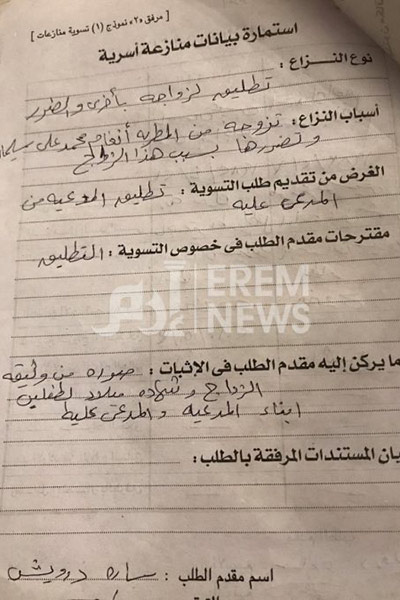 [ مرفق «٢» نموذج (١) تسوية منازعات ]
استمارة بيانات منازعة أسرية
نوع النــزاع :
تطليق لزواجه بأخرى والضرر
أسباب النزاع : تزوجه من المطربه أنغام محمد على سليمان
وتضررها بسبب هذا الزواج
الغرض من تقديم طلب التسوية : تطليق المدعيه من
المدعى عليه
مقترحات مقدم الطلب فى خصوص التسوية : التطليق
إرم EREM
NEWS
ما يركن إليه مقدم الطلب فى الإثبات : صوره من وثيقه
الزواج وشهاده ميلاد لطفلين
ابناء المدعيه والمدعى عليه
يان المستندات المرفقة بالطلب :
اسم مقدم الطلب : ساره درويش